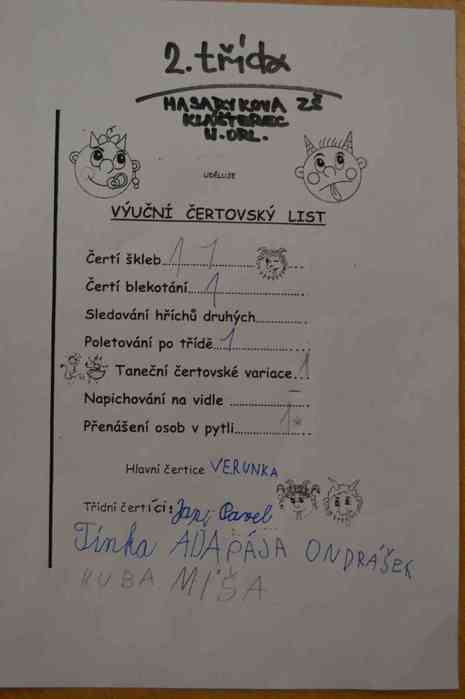 2. třída
MASARYKOVA ZŠ
KLÁŠTEREC
N. ORL.
UDĚLUJE
VÝUČNÍ ČERTOVSKÝ LIST
Čertí škleb 1 1
Čertí blekotání 1
Sledování hříchů druhých
Poletování po třídě 1
Taneční čertovské variace 1
Napichování na vidle –
Přenášení osob v pytli 1*
Hlavní čertice VERUNKA
Třídní čertíci: Jan, Pavel
Tinka ADA PÁJA ONDRÁŠEK
KUBA MÍŠA